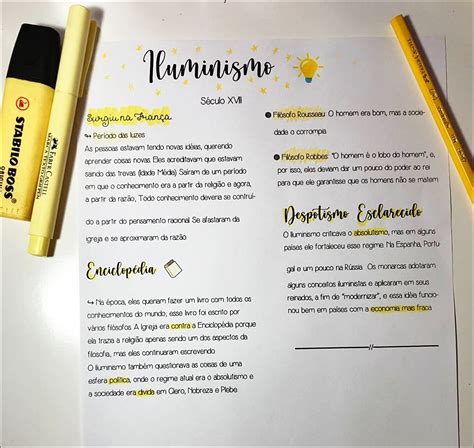 Iluminismo
Século XVII
Surgiu na França
↪ Período das luzes
As pessoas estavam tendo novas idéias, querendo
aprender coisas novas. Eles acreditavam que estavam
sando das trevas (Idade Média). Saíram de um período
em que o conhecimento era a partir da religião e agora,
a partir da razão. Todo conhecimento deveria se construí-
do a partir do pensamento racional. Se afastaram da
igreja e se aproximaram da razão
Enciclopédia
↪ Na época, eles queriam fazer um livro com todos os
conhecimentos do mundo, esse livro foi escrito por
vários filósofos. A Igreja era contra a Enciclopédia porque
ela trazia a religião apenas sendo um dos aspectos da
filosofia, mas eles continuaram escrevendo
O Iluminismo também questionava as coisas de uma
esfera política, onde o regime atual era o absolutismo e
a sociedade era divida em Clero, Nobreza e Plebe.
Filósofo Rousseau: O homem era bom, mas a socie-
dade o corrompia
Filósofo Robbes: "O homem é o lobo do homem", e,
por isso, eles deviam dar um pouco do poder ao rei
para que ele garantisse que os homens não se matem
Despotismo Esclarecido
O Iluminismo criticava o absolutismo, mas em alguns
países ele fortaleceu esse regime. Na Espanha, Portu
gal e um pouco na Rússia. Os monarcas adotaram
alguns conceitos iluministas e aplicaram em seus
reinados, a fim de "modernizar", e essa idéia funcio-
nou bem em países com a economia mais fraca
STABILO BOSS
FABER-CASTELL